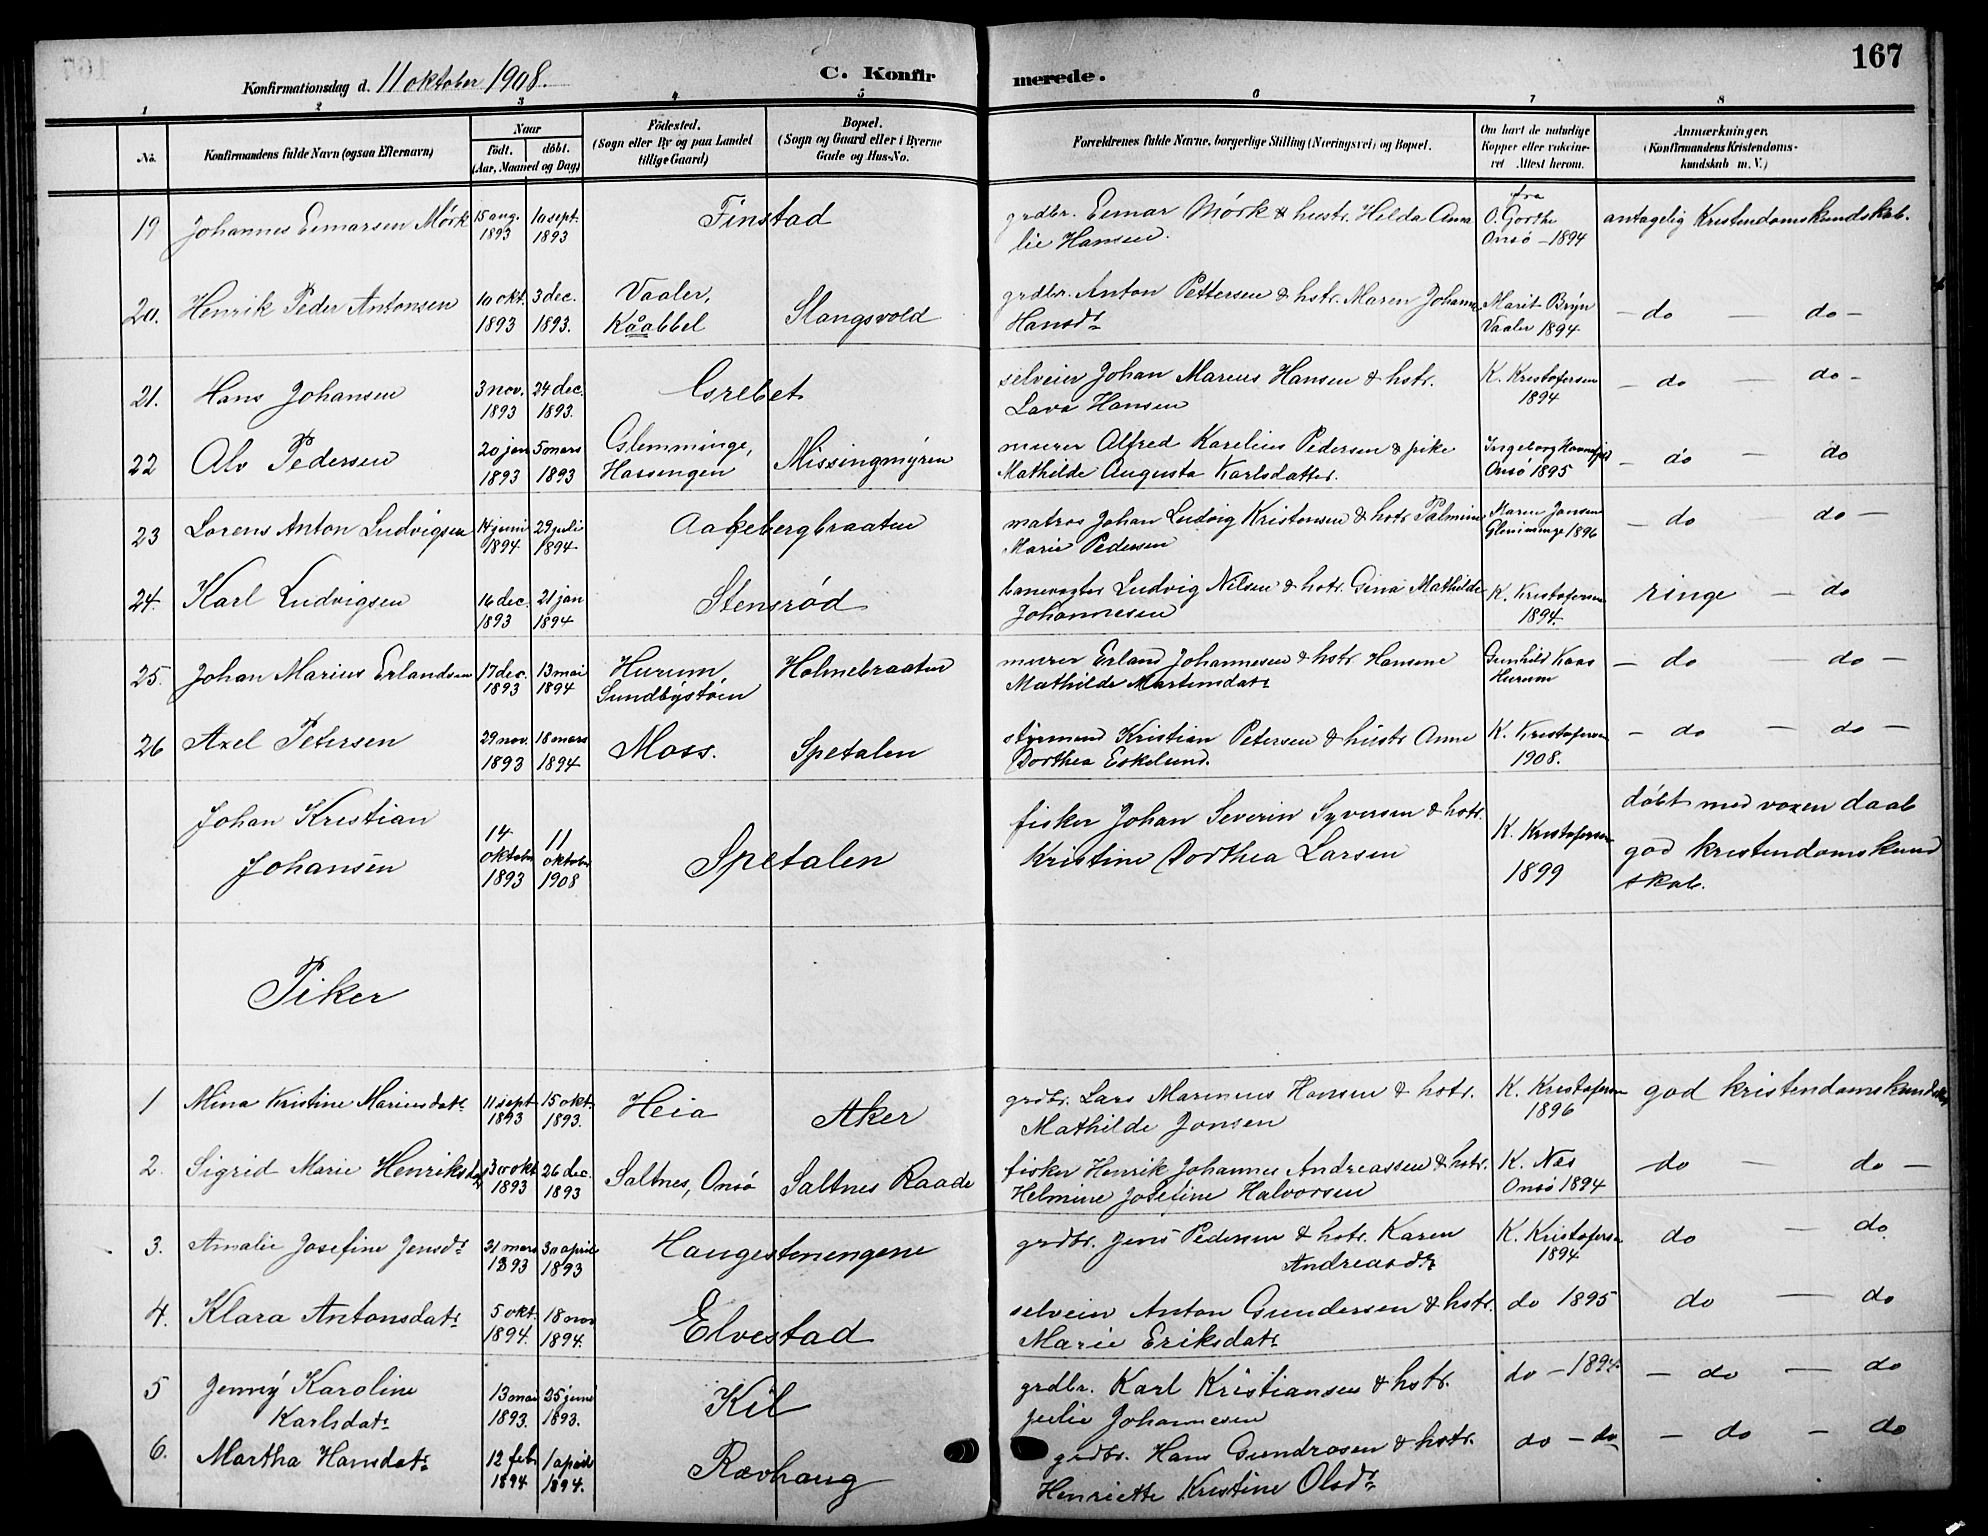 167
Konfirmationsdag d. 11 oktober 1908.
C. Konfirmerede.
1 2 3 4 5 6 7 8
No. Konfirmandens fulde Navn (ogsaa Efternavn) Naar født. døbt. (Aar, Maaned og Dag) Fødested. (Sogn eller By og paa Landet tillige Gaard) Bopæl. (Sogn og Gaard eller i Byerne Gade og Hus-No. Forældrenes fulde Navne, borgerlige Stilling (Næringsvei) og Bopæl. Om havt de naturlige Kopper eller vakcineret Attest herom. Anmærkninger. (Konfirmandens Kristendomskundskab m. V.)
19 Johannes Eimarsen Mörk 15 aug. 1893 10 sept. 1893 Finstad grdbr. Eimar Mörk & hustr. Hilda Ama
lie Hansen. fra O. Gorthe Onsö - 1894 antagelig Kristendomskundskab.
20. Henrik Peder Antonsen 10 okt. 1893 3 dec. 1893. Vaaler, Kåabbel Slangsvold grdbr. Anton Pettersen & hstr. Maren Johanne
Hansdr Marit Bryn Vaaler 1894 - do - do -
21. Hans Johansen 3 nov. 1893 24 dec. 1893. Grebet selveier Johan Marius Hansen & hstr.
Lava Hansen K. Kristofersen 1894 - do - do -
22 Alv Pedersen 20 jan 1893 5 mars 1893 Glemminge, Hassengen Missingmyren murer Alfred Karelius Pedersen & pike
Mathilde Augusta Karlsdatter. Ingeborg Onsö 1895 - do - do
23 Lorens Anton Ludvigsen 14 juni 1894 29 juli 1894 Aakebergbraaten matros Johan Ludvig Kristensen & hstr Palmine
Marie Pedersen Karen Jansen Glemminge 1896 - do do -
24. Karl Ludvigsen 16 dec. 1893 21 jan 1894 Stensröd banevogter Ludvig Nilsen & hstr. Gina Mathilde
Johannesen K. Kristofersen 1894. ringe - do
25. Johan Marius Erlandsen 17 dec. 1893 13 mai 1894 Hurum, Sundbystöen Holmebraaten murer Erland Johannesen & hstr. Hansine
Mathilde Martinsdatr Gunhild Kaas Hurum - do - do -
26 Axel Petersen 29 nov. 1893 18 mars 1894 Moss. Spetalen styrmand Kristian Petersen & hustr Anne
Dorthea Eskelund. K. Kristofersen 1908. - do - do -
Johan Kristian
Johansen 14 oktober 1893 11 oktober 1908 Spetalen fisker Johan Severin Syversen & hstr.
Kristine Dorthea Larsen K. Kristofersen 1899 döbt med voxen daab
god kristendomskund
skab.
Piker
1 Mina Kristine Mariusdatr 11 sept 1893 15 okt. 1893. Heia Aker grdbr. Lars Marinius Hansen & hstr.
Mathilde Jonsen K. Kristofersen 1896 god kristendomskundskab
2. Sigrid Marie Henriksdatr 30 okt 1893 26 dec. 1893 Saltnes, Onsö Saltnes Raade fisker Henrik Johannes Andreassen & hstr.
Helmine Josefine Halvorsen K. Nes Onsö 1894 do - do -
3. Amalie Josefine Jensdr 31 mars 1893 30 april 1893 Haugestenengene grdbr. Jens Pedersen & hstr. Karen
Andreasdr K. Kristofersen 1894 do - do.
4. Klara Antonsdatr 5 okt. 1894. 18 nov 1894. Elvestad selveier Anton Gundersen & hstr.
Marie Eriksdatr do 1895 do - do
5 Jenny Karoline
Karlsdatr 13 mai 1893. 25 juni 1893. Kil grdbr. Karl Kristiansen & hstr.
Julie Johannesen do - 1894. - do - do
6. Martha Hansdatr 12 febr 1894 1 april 1894. Rævhaug grdbr. Hans Gundrosen & hstr.
Henriette Kristine Olsdr do - do - do - do